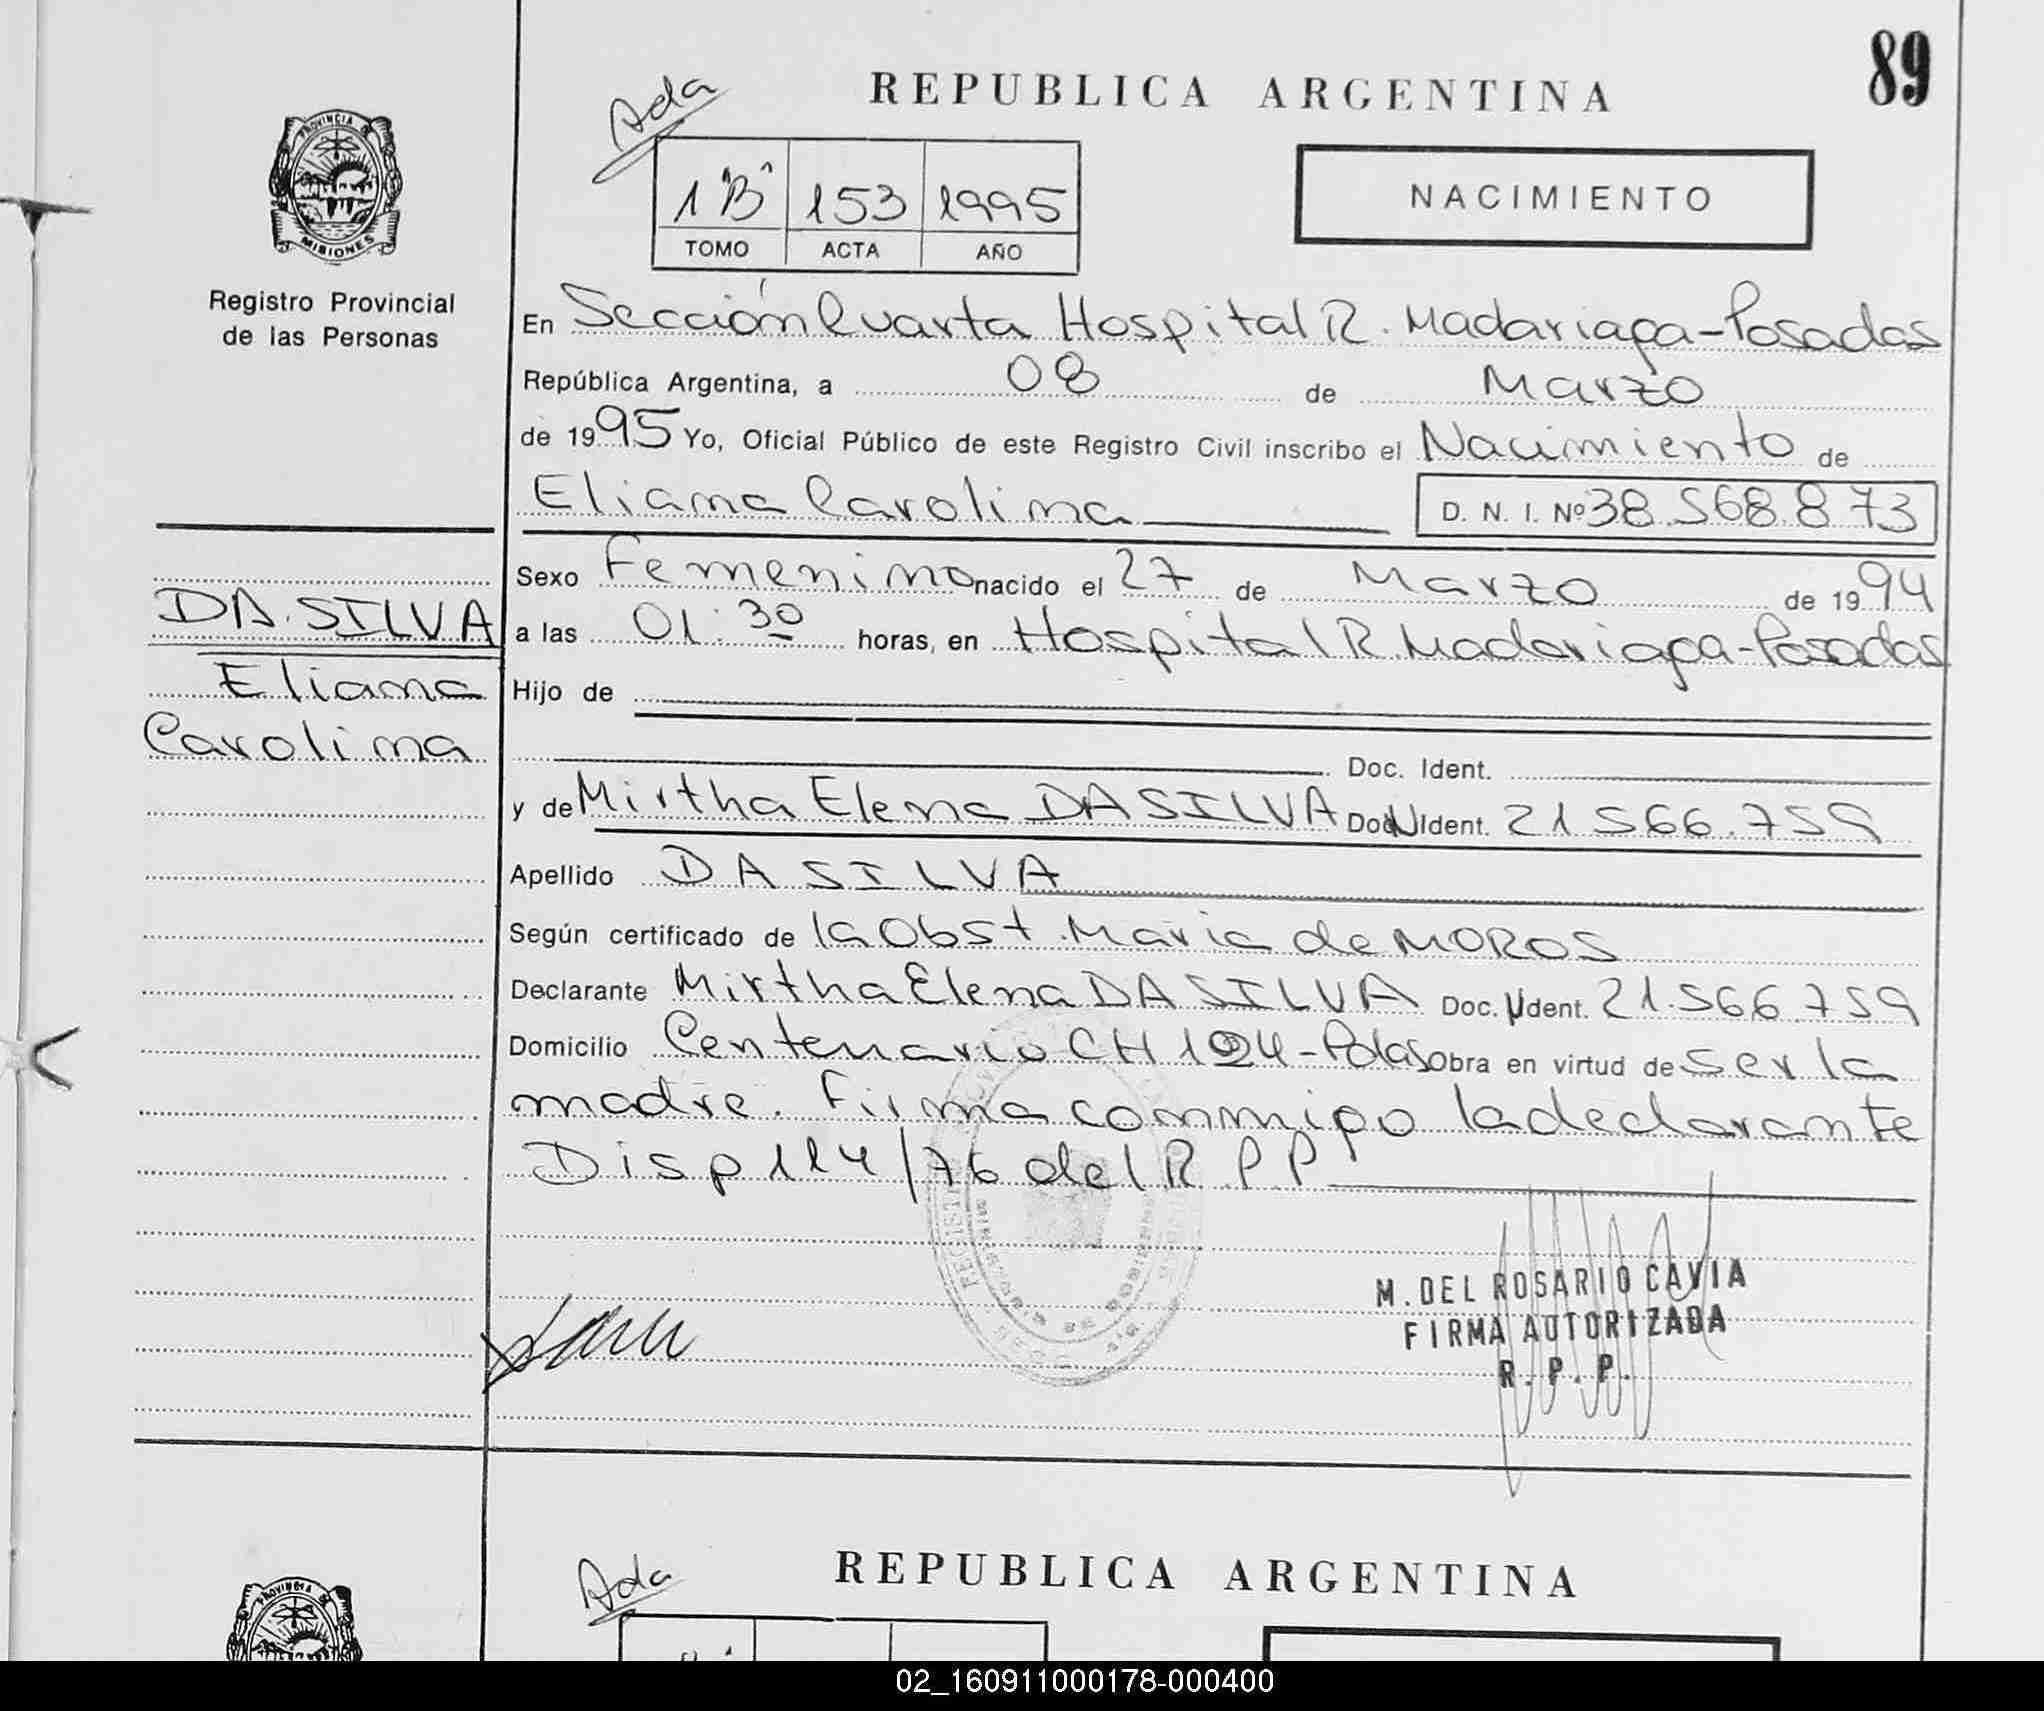 89
Ada
REPUBLICA ARGENTINA
PROVINCIA DE
MISIONES
Registro Provincial
de las Personas
1 "B" 153 1995
TOMO ACTA AÑO
NACIMIENTO
En Sección Cuarta Hospital R. Madariaga-Posadas
República Argentina, a 08 de Marzo
de 1995 Yo, Oficial Público de este Registro Civil inscribo el Nacimiento de
Eliana Carolina D. N. I. Nº 38.568.873
Sexo Femenino nacido el 27 de Marzo de 1994
DA SILVA
Eliana
Carolina
a las 01:30 horas, en Hospital R. Madariaga-Posadas
Hijo de
Doc. Ident.
y de Mirtha Elena DA SILVA Doc. Ident. 21.566.759
Apellido DA SILVA
Según certificado de la Obst. Maria de MOROS
Declarante Mirtha Elena DA SILVA Doc. Ident. 21.566.759
Domicilio Centenario CH Obra en virtud de ser la
madre. Firma conmigo la declarante
Disp 114/76 del R P P
M. DEL ROSARIO CAVIA
FIRMA AUTORIZADA
R. P. P.
Ada
REPUBLICA ARGENTINA
PROVINCIA
02_160911000178-000400